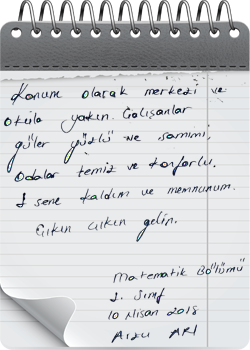 Konum olarak merkezi ve
okula yakın. Çalışanlar
güler yüzlü ve samimi,
odalar temiz ve konforlu.
1 sene kaldım ve memnunum.
Gelin.
Matematik Bölümü
2. sınıf
10 Nisan 2018
Arzu ARI